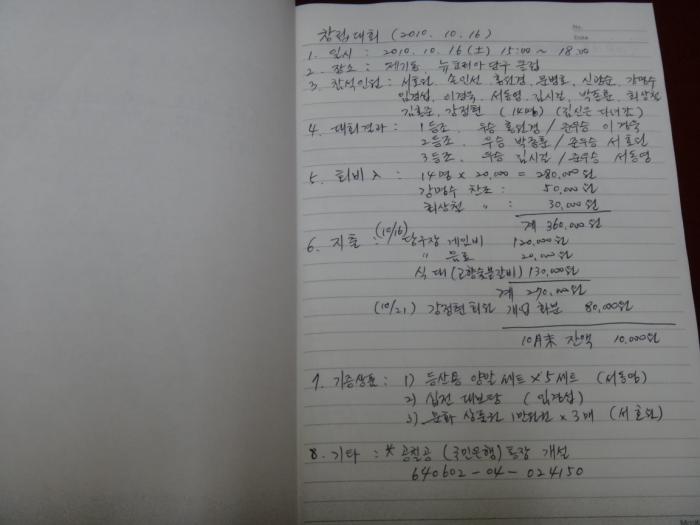 No.
Date
창립대회 (2010. 10. 16)
1. 일시 : 2010. 10. 16 (土) 15:00 ~ 18:00
2. 장소 : 제기동, 뉴코리아 당구 클럽
3. 참석인원 : 서호원, 손인선, 홍원경, 문병호, 신완순, 강명수
임경섭, 이경욱, 서동영, 김시길, 박동훈, 최상철
김흥준, 강정현 (14명) (김신은 다녀감)
4. 대회결과 : 1등조. 우승 홍원경 / 준우승 이경욱
2등조. 우승 박종훈 / 준우승 서호원
3등조. 우승 김시길 / 준우승 서동영
5. 회비 入 : 14명 × 20,000 = 280,000원
강명수 찬조 : 50,000원
최상철 〃 : 30,000원
계 360,000원
6. 지출 : (10/16) 당구장 게임비 120,000원
〃 음료 20,000원
식대 (고향숯불갈비) 130,000원
계 270,000원
(10/21) 강정현회원 개업 화분 80,000원
10月末 잔액 10,000원
7. 기증상품 : 1) 등산용 양말세트 × 5세트 (서동영)
2) 십전대보탕 (임경섭)
3) 문화상품권 1만원권 × 3매 (서호원)
8. 기타 : * 공칠공 (국민은행) 통장 개설
640602-04-024150